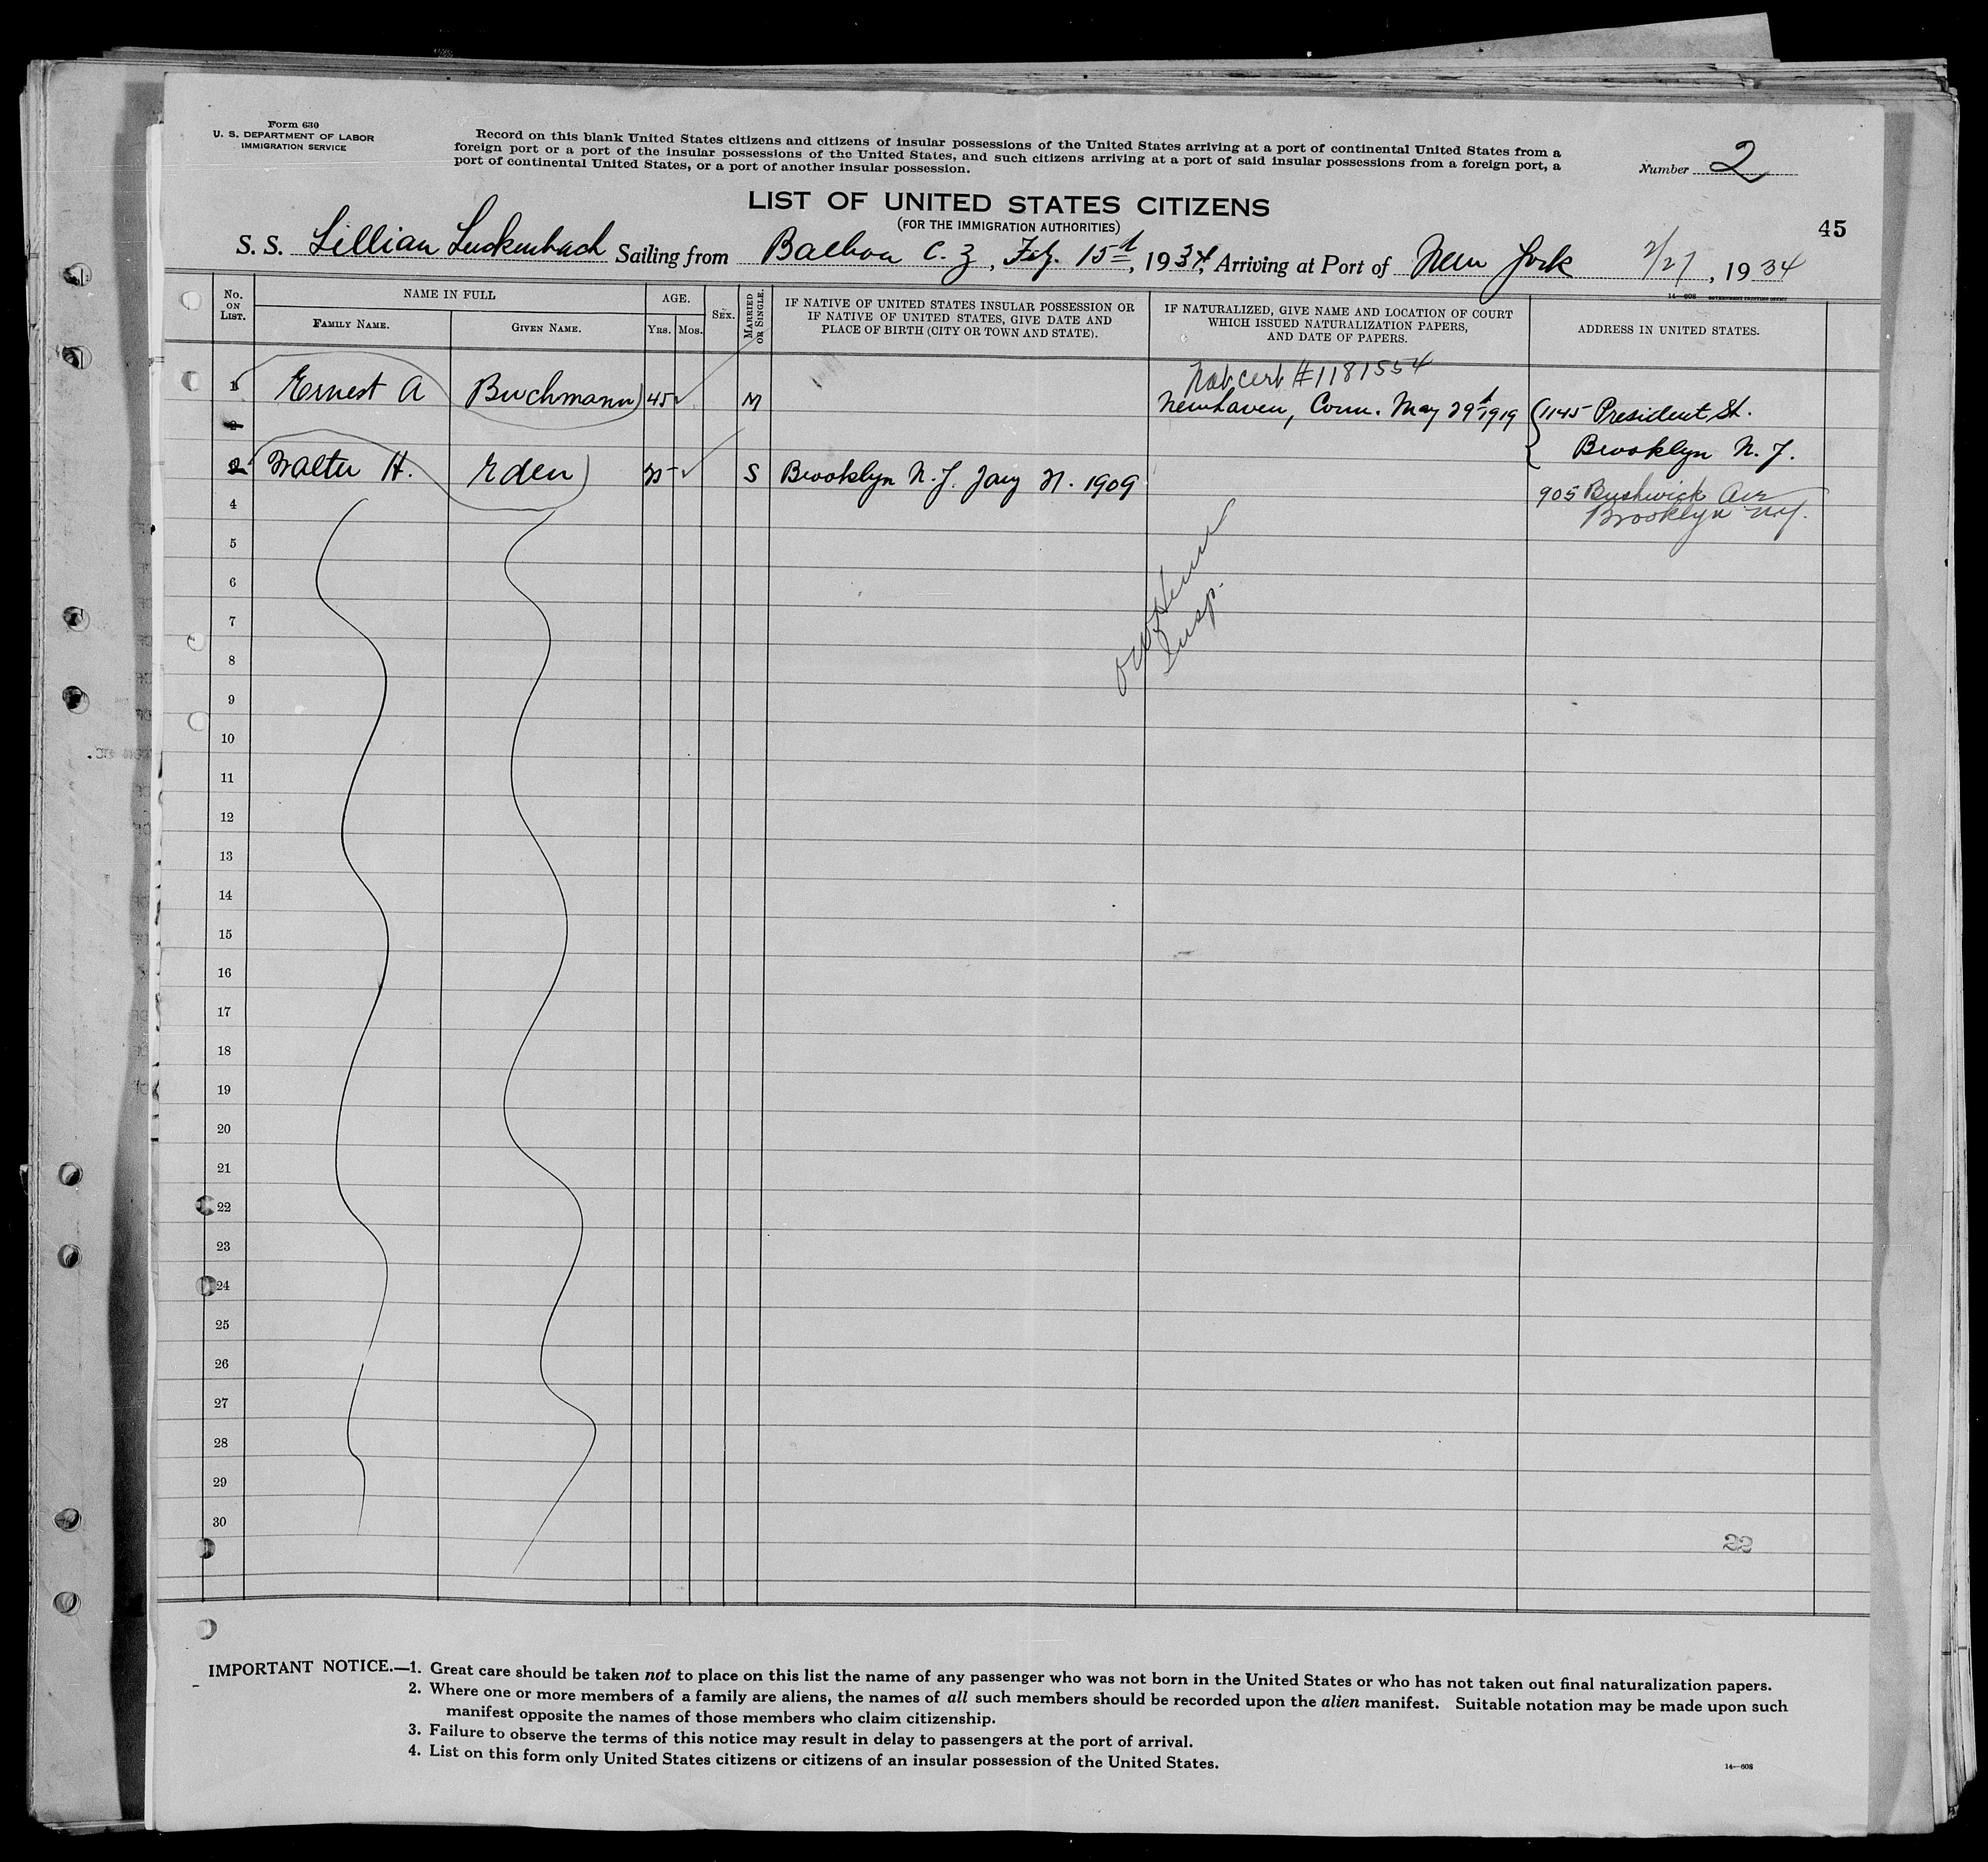 Form 630
U. S. DEPARTMENT OF LABOR
IMMIGRATION SERVICE
Record on this blank United States citizens and citizens of insular possessions of the United States arriving at a port of continental United States from a
foreign port or a port of the insular possessions of the United States, and such citizens arriving at a port of said insular possessions from a foreign port, a
port of continental United States, or a port of another insular possession.
Number 2
LIST OF UNITED STATES CITIZENS
(FOR THE IMMIGRATION AUTHORITIES)
45
S. S. Lillian Luckenbach Sailing from Balboa C. Z., Feb. 15th, 1934, Arriving at Port of New York 2/27, 1934
14—608 GOVERNMENT PRINTING OFFICE
No. ON LIST.
NAME IN FULL
FAMILY NAME.
GIVEN NAME.
AGE.
YRS.
MOS.
SEX.
MARRIED OR SINGLE.
IF NATIVE OF UNITED STATES INSULAR POSSESSION OR
IF NATIVE OF UNITED STATES, GIVE DATE AND
PLACE OF BIRTH (CITY OR TOWN AND STATE).
IF NATURALIZED, GIVE NAME AND LOCATION OF COURT
WHICH ISSUED NATURALIZATION PAPERS,
AND DATE OF PAPERS.
ADDRESS IN UNITED STATES.
Nat. Cert #1181554
1 Ernest A Buchmann 45 M Newhaven, Conn. May 29th 1919 1145 President St.
2 Brooklyn N.Y.
2 Walter H. Eden 25 S Brooklyn N.Y. Jany 21. 1909
905 Bushwick Ave
Brooklyn N.Y.
4
5
6
Insp.
7
8
9
10
11
12
13
14
15
16
17
18
19
20
21
22
23
24
25
26
27
28
29
30
22
IMPORTANT NOTICE.—1. Great care should be taken not to place on this list the name of any passenger who was not born in the United States or who has not taken out final naturalization papers.
2. Where one or more members of a family are aliens, the names of all such members should be recorded upon the alien manifest. Suitable notation may be made upon such
manifest opposite the names of those members who claim citizenship.
3. Failure to observe the terms of this notice may result in delay to passengers at the port of arrival.
4. List on this form only United States citizens or citizens of an insular possession of the United States.
14—608